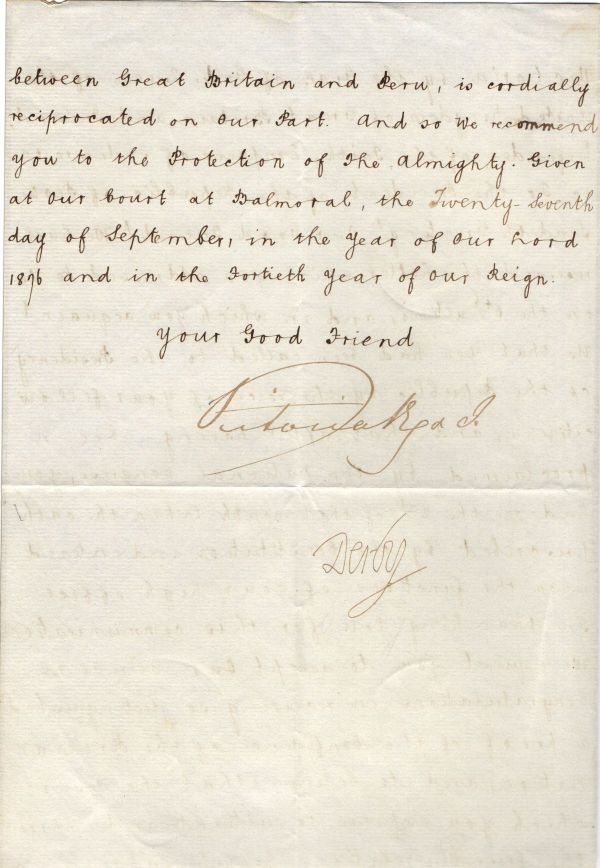 between Great Britain and Peru, is cordially
reciprocated on Our Part. And so We recommend
you to the Protection of The Almighty. Given
at Our Court at Balmoral, the Twenty-Seventh
day of September, in the Year of Our Lord
1876 and in the Fortieth Year of Our Reign.
Your Good Friend
Victoria R
Derby